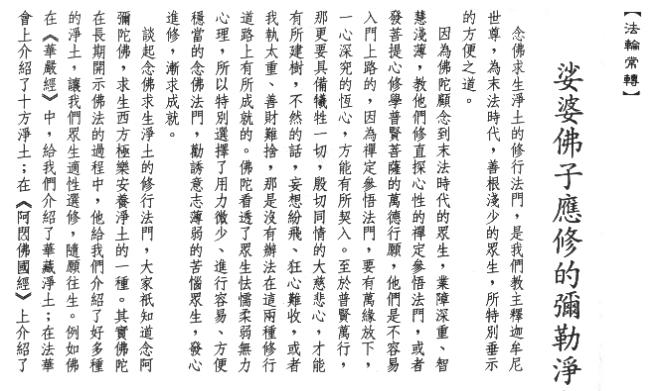 【法輪常轉】
娑婆佛子應修的彌勒淨
念佛求生淨土的修行法門，是我們教主釋迦牟尼
世尊，為末法時代，善根淺少的眾生，所特別垂示
的方便之道。
因為佛陀顧念到末法時代的眾生，業障深重、智
慧淺薄，教他們修直探心性的禪定參悟法門，或者
發菩提心修學普賢菩薩的萬德行願，他們是不容易
入門上路的，因為禪定參悟法門，要有萬緣放下，
一心深究的恆心，方能有所契入。至於普賢萬行，
那更要具備犧牲一切，殷切同情的大慈悲心，才能
有所建樹，不然的話，妄想紛飛、狂心難收，或者
我執太重、善財難捨，那是沒有辦法在這兩種修行
道路上有所成就的。佛陀看透了眾生怯懦柔弱無力
心理，所以特別選擇了用力微少、進行容易、方便
穩當的念佛法門，勸誘意志薄弱的苦惱眾生，發心
進修，漸求成就。
談起念佛求生淨土的修行法門，大家祇知道念阿
彌陀佛，求生西方極樂安養淨土的一種。其實佛陀
在長期開示佛法的過程中，他給我們介紹了好多種
的淨土，讓我們眾生適性選修，隨願往生。例如佛
在《華嚴經》中，給我們介紹了華藏淨土；在法華
會上介紹了十方淨土；在《阿閦佛國經》上介紹了